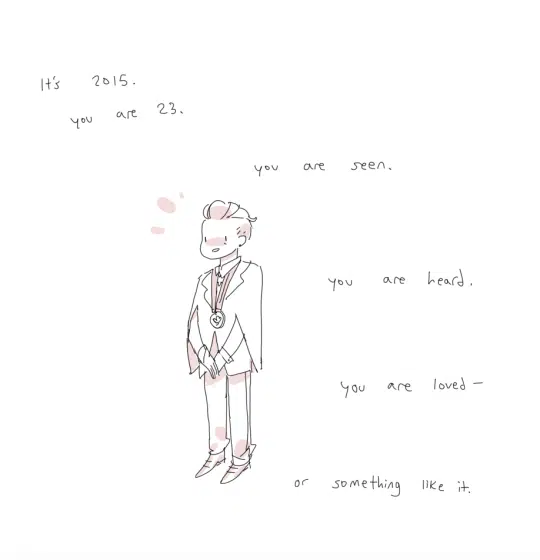 It's 2015.
you are 23.
you are seen.
you are heard.
you are loved—
or something like it.